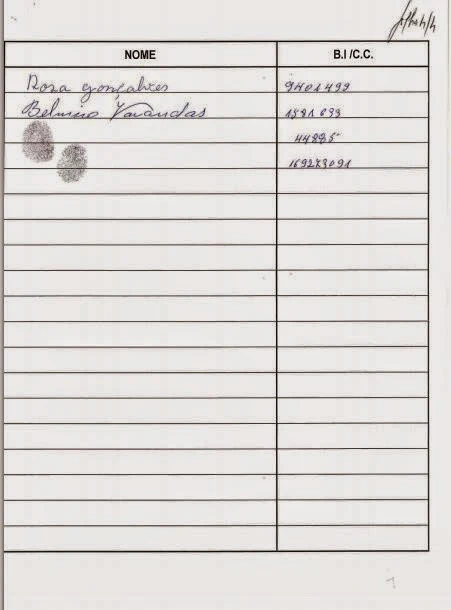 NOME B.I /C.C.
Rosa Gonçalves 9401499
Belmiro Varandas
44895
169273091